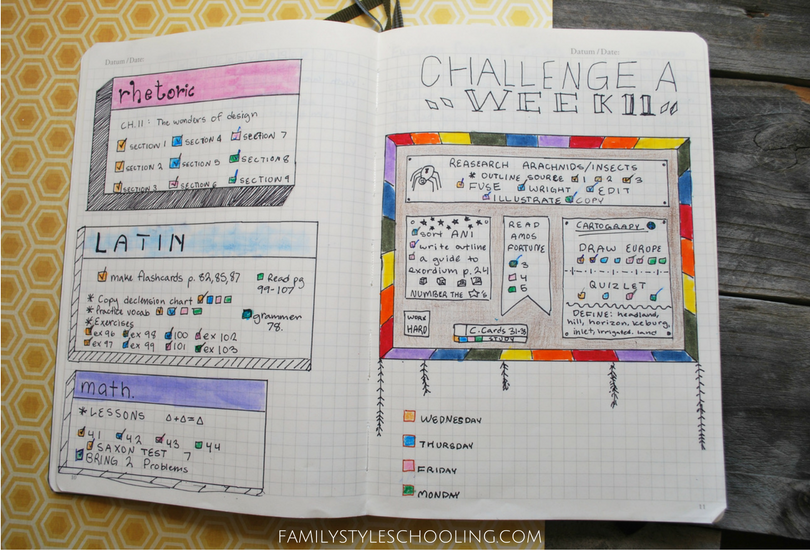 Datum/Date:
rhetoric
CH.11: The wonders of design
SECTION 1 SECTION 4 SECTION 7
SECTION 2 SECTION 5 SECTION 8
SECTION 3 SECTION 6 SECTION 9
LATIN
make flashcards p. 82,85,87
Read pg 99-107
* Copy declension chart
* Practice vocab
grammer 78.
* Exercises
ex 96 ex 98 100 ex 102
ex 97 ex 99 101 ex 103
math.
* LESSONS Δ+Δ=Δ
41 42 43 44
SAXON TEST 7
BRING 2 Problems
Datum/Date:
CHALLENGE A
WEEK 11
REASEARCH ARACHNIDS/INSECTS
* OUTLINE SOURCE 1 2 3
FUSE WRIGHT EDIT
ILLUSTRATE COPY
sort ANI
write outline
a guide to
exordium p.24
NUMBER THE 's
READ
AMOS
FORTUNE
3
4
5
CARTOGRAPY
DRAW EUROPE
QUIZLET
DEFINE: headland,
hill, horizon, iceburg,
inlet, irrigated, land
WORK
HARD
C.Cards 31-
STUDY
WEDNESDAY
THURSDAY
FRIDAY
MONDAY
11
FAMILYSTYLESCHOOLING.COM